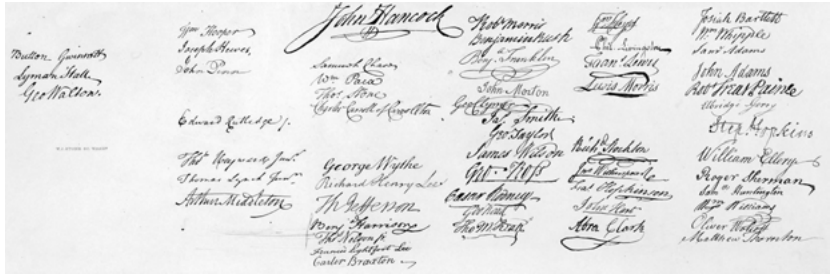 Button Gwinnett
Lyman Hall
Geo Walton.
Wm Hooper
Joseph Hewes,
John Penn
Edward Rutledge /.
Thos Heyward Junr.
Thomas Lynch Junr.
Arthur Middleton
John Hancock
Samuel Chase
Wm Paca
Thos Stone
Charles Carroll of Carrollton
George Wythe
Richard Henry Lee
Th Jefferson
Benj Harrison
Thos Nelson jr.
Francis Lightfoot Lee
Carter Braxton
Robt Morris
Benjamin Rush
Benj Franklin
John Morton
Geo Clymer
Jas Smith
Geo. Taylor
James Wilson
Geo. Ross
Caesar Rodney
Geo Read
Tho M:Kean
Wm Floyd
Phil. Livingston
Frans. Lewis
Lewis Morris
Richd. Stockton
Jno Witherspoon
Fras. Hopkinson
John Hart
Abra Clark
Josiah Bartlett
Wm Whipple
Saml Adams
John Adams
Robt Treat Paine
Elbridge Gerry
Step. Hopkins
William Ellery
Roger Sherman
Saml Huntington
Wm Williams
Oliver Wolcott
Matthew Thornton